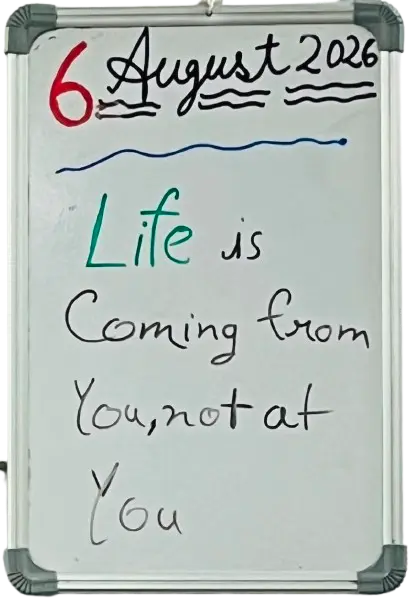 6 August 2026
Life is
Coming from
You, not at
You